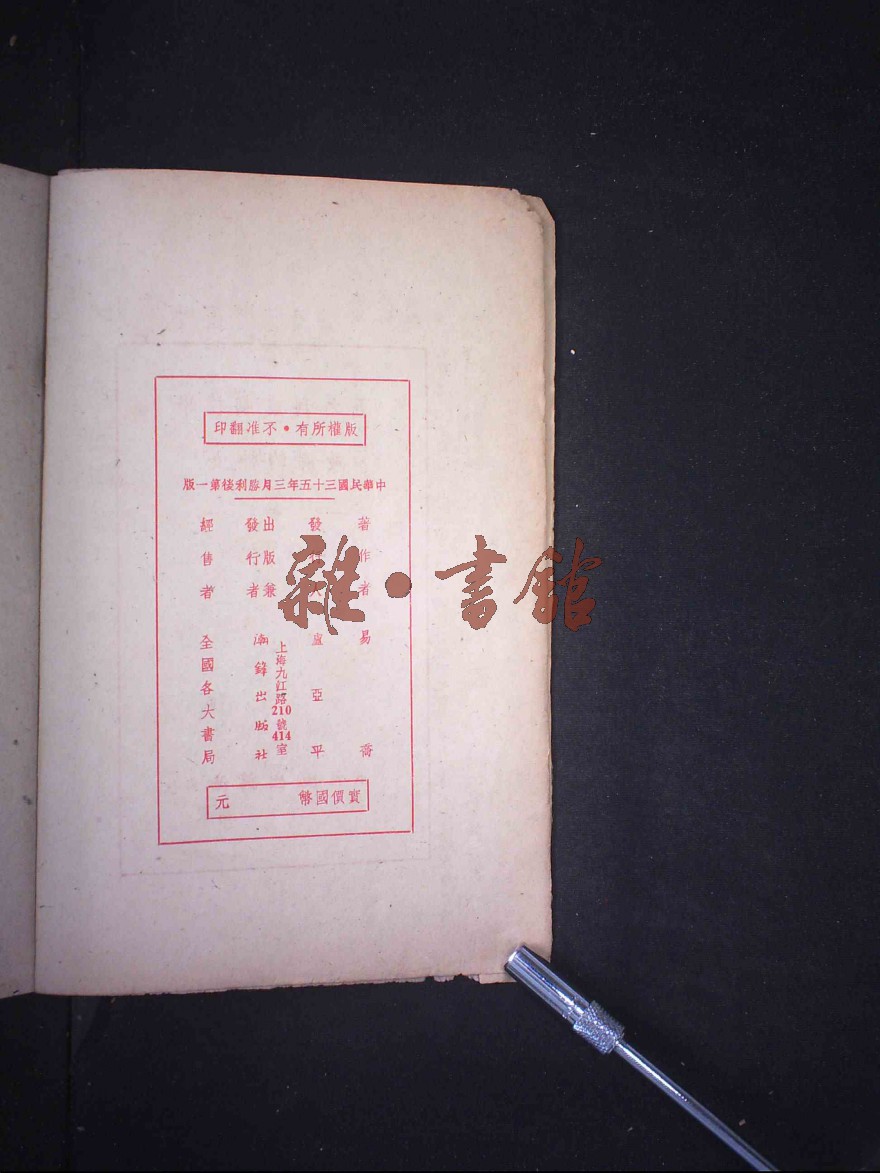 版權所有•不准翻印
中華民國三十五年三月勝利後第一版
著作者 易喬
發行人 盧亞平
出版兼
發行者
上海九江路210號414室
潮鋒出版社
經售者 全國各大書局
實價國幣 元
雜•書館